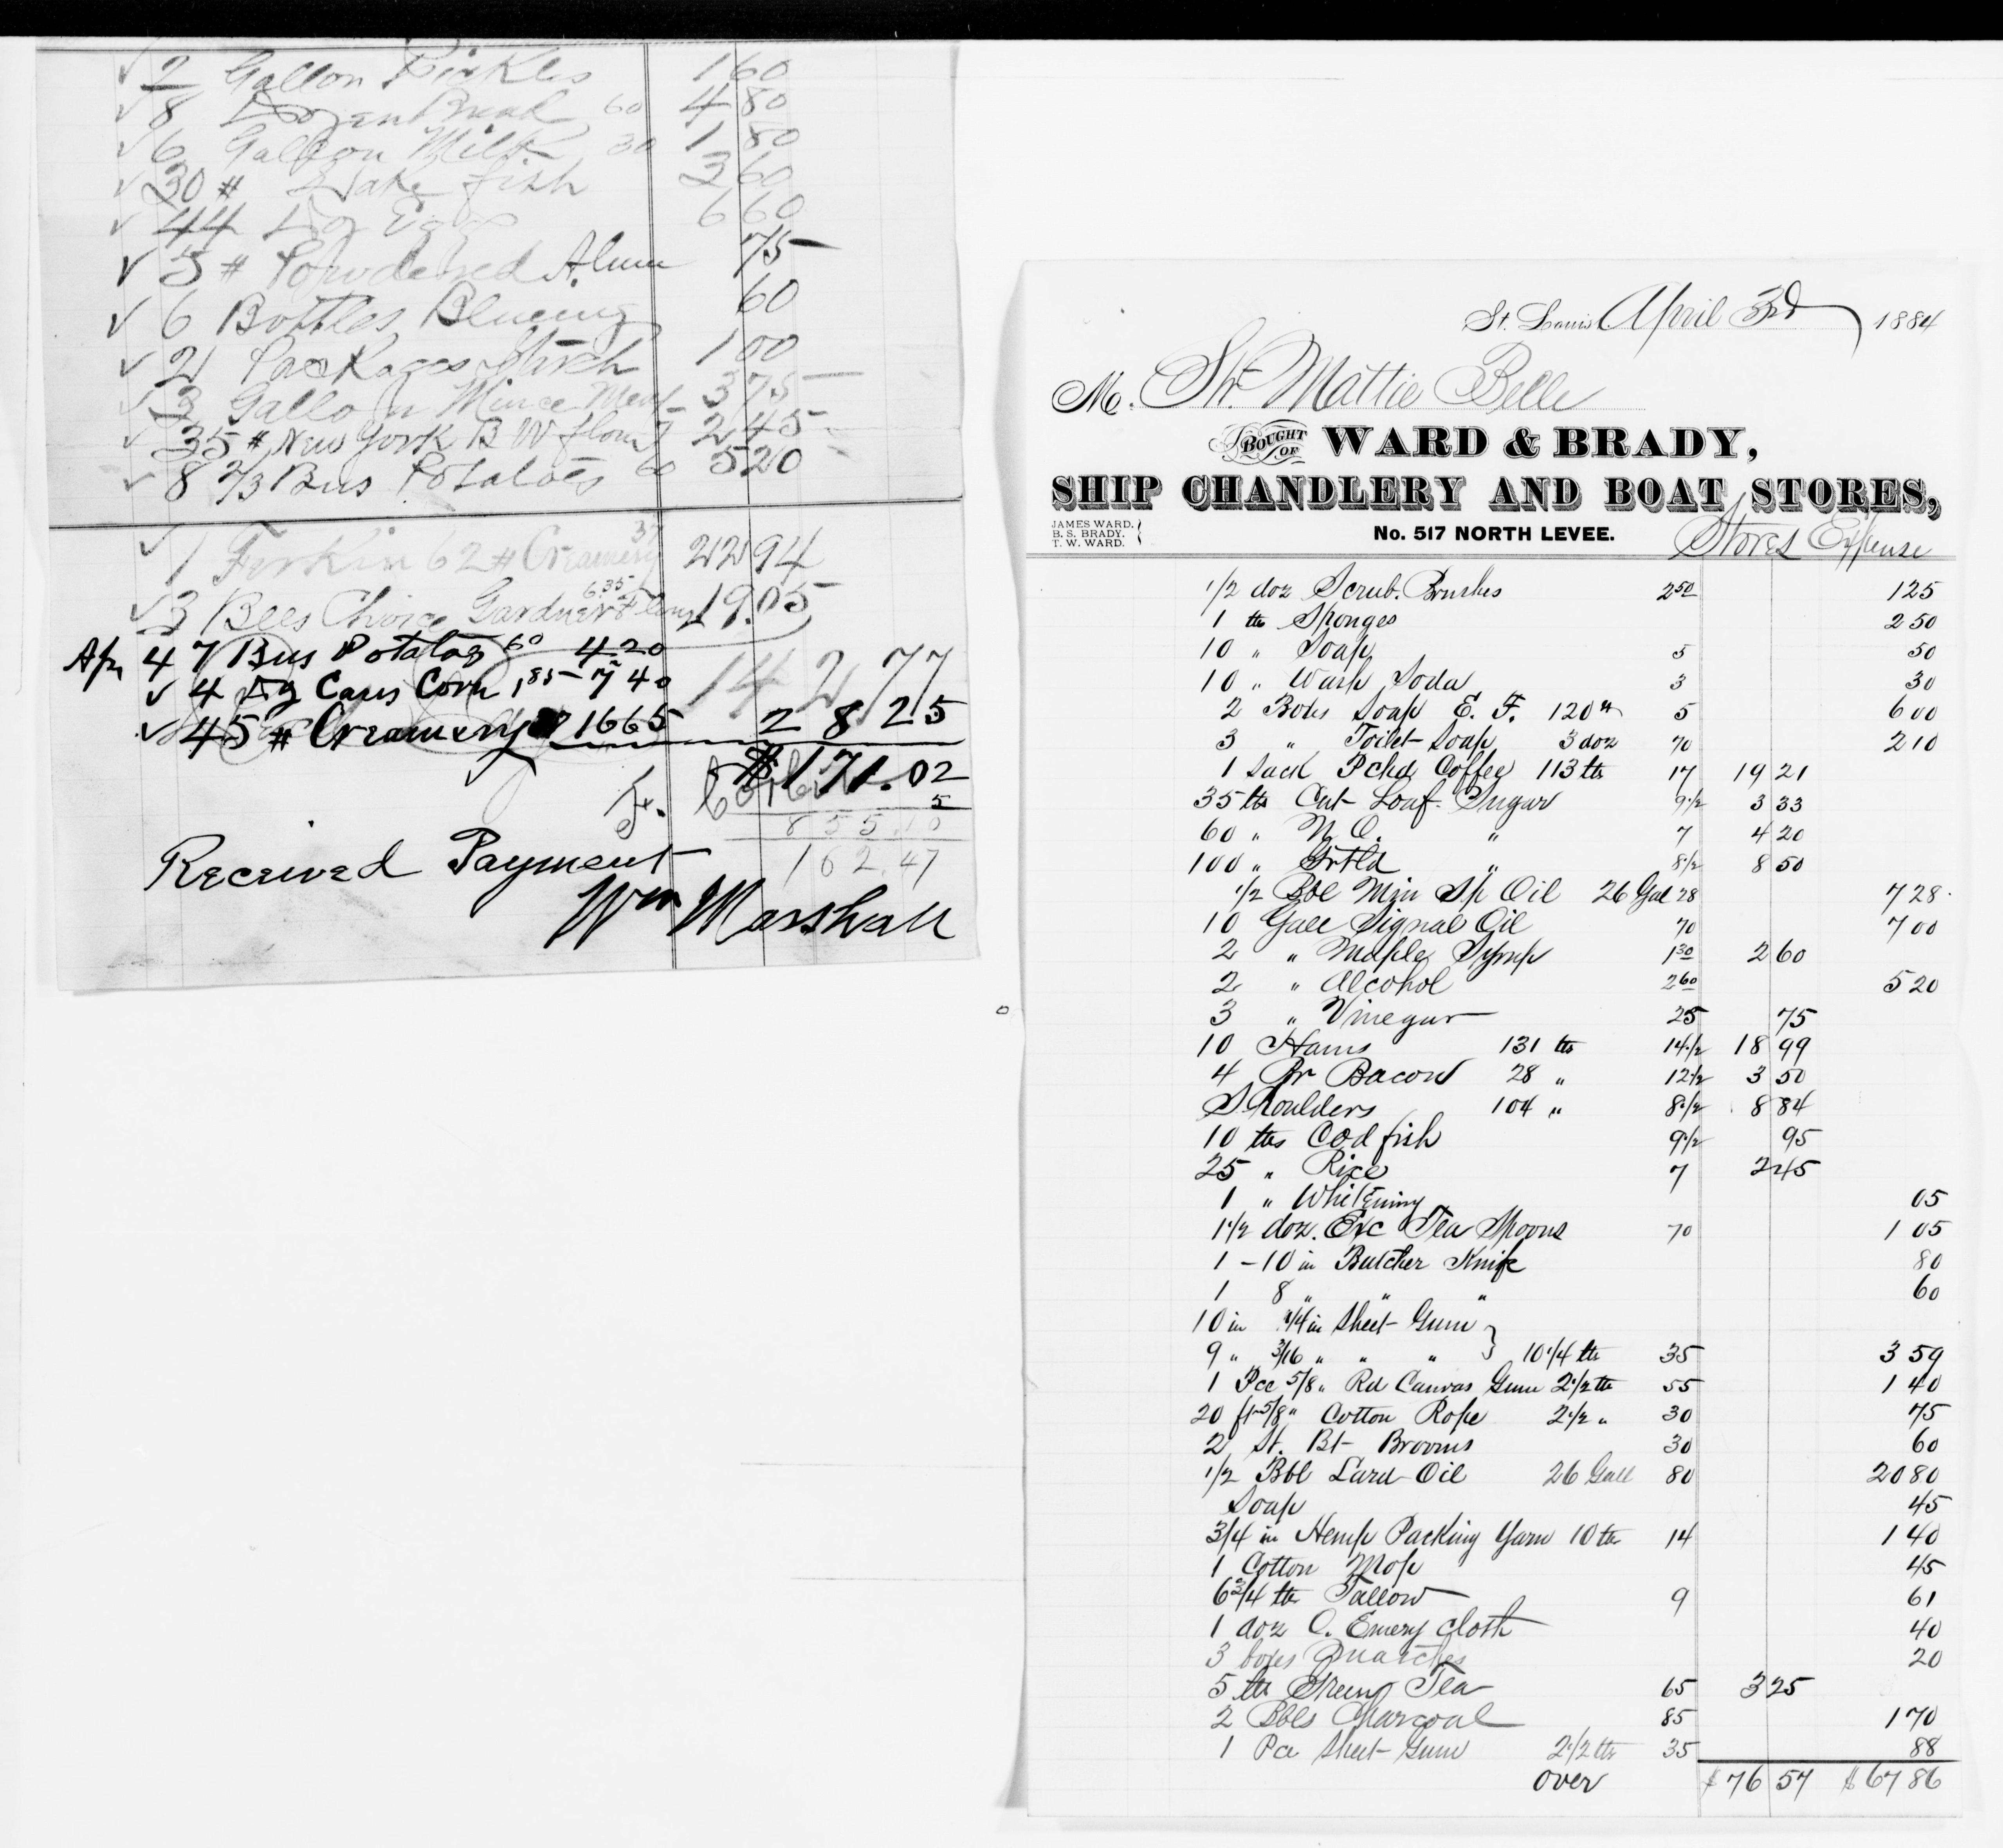 ✓ 2 Gallon Pickles 1 60
✓ 8 Dozen Bread 60 4 80
✓ 6 Gallon Milk 30 1 80
✓ 30 # Lake fish 3 60
✓ 44 Dz Eggs 6 60
✓ 5 # Powdered Alum 75
✓ 6 Bottles Bluemg 60
✓ 2 Packages Starch 1 00
✓ 3 Gallon Mince Meat 3 75
✓ 35 # New York B W flour 7 2 45
✓ 8 2/3 Bus Potatoes 60 5 20
✓ 1 Firkin 62 # Creamery 37 22 94
✓ 3 Bbls Choice Gardner Flour 6.35 19.05
142 77
Apr 4 7 Bus Potatoes 60 4 20
✓ 4 Dz Cans Corn 1 85 7 40
✓ 45 # Creamery 37 16 65 28 25
$171.02
5
8 55 10
162.47
Received Payment
Wm Marshall
St. Louis, April 3rd 1884
M. Str Mattie Belle
BOUGHT OF WARD & BRADY,
SHIP CHANDLERY AND BOAT STORES,
JAMES WARD.
B. S. BRADY.
T. W. WARD.
No. 517 NORTH LEVEE.
Stores Expense
1/2 doz Scrub. Brushes 2 50 1 25
1 lb Sponges 2 50
10 " Soap 5 50
10 " Wash Soda 3 30
2 Boxes Soap E. F. 120 # 5 6 00
3 " Toilet Soap 3 doz 70 2 10
1 Sack Pchd Coffee 113 lbs 17 19 21
35 lbs Cut Loaf Sugar 9 1/2 3 33
60 " N O. " 7 4 20
100 " Grtld " 8 1/2 8 50
1/2 Bbl Min Sp Oil 26 Gal 28 7 28
10 Gall Signal Oil 70 7 00
2 " Maple Syrup 1 30 2 60
2 " Alcohol 2 60 5 20
3 " Vinegar 25 75
10 Hams 131 lbs 14 1/2 18 99
4 Br Bacon 28 " 12 1/2 3 50
Shoulders 104 " 8 1/2 8 84
10 lbs Cod fish 9 1/2 95
25 " Rice 7 2 45
1 " Whitening 05
1 1/2 doz. Exc Tea Spoons 70 1 05
1 - 10 in Butcher Knife 80
1 8 " " " 60
10 in 1/4 in Sheet Gum
9 " 3/16 " " " } 10 1/4 lbs 35 3 59
1 Pce 5/8 " Rd Canvas Gum 2 1/2 lbs 55 1 40
20 ft 5/8 " Cotton Rope 2 1/2 " 30 75
2 St. Bt Brooms 30 60
1/2 Bbl Lard Oil 26 Gall 80 20 80
Soap 45
3/4 in Hemp Packing Yarn 10 lbs 14 1 40
1 Cotton Mop 45
6 3/4 lbs Tallow 9 61
1 doz O. Emery Cloth 40
3 boxes Matches 20
5 lbs Green Tea 65 3 25
2 Bbls Charcoal 85 1 70
1 Pce Sheet Gum 2 1/2 lbs 35 88
Over $ 76 57 $ 67 86